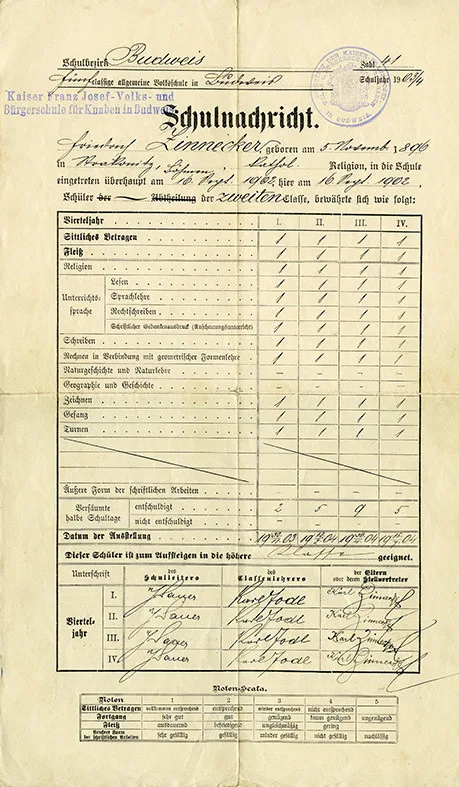 Schulbezirk Budweis Zahl 41
Fünfclassige allgemeine Volksschule in Budweis Schuljahr 1903/4
Kaiser Franz Josef-Volks- und
Bürgerschule für Knaben in Budweis
IN BUDWEIS
Schulnachricht.
Friedrich Zinnecker geboren am 5. Novemb. 1896
in Böhmen, Kathol. Religion, in die Schule
eingetreten überhaupt am 16. Sept. 1902, hier am 16. Sept. 1902.
Schüler der — Abtheilung der zweiten Classe, bewährte sich wie folgt:
Vierteljahr I. II. III. IV.
Sittliches Betragen 1 1 1 1
Fleiß 1 1 1 1
Religion 1 1 1 1
Unterrichts-
sprache
Lesen 1 1 1 1
Sprachlehre 1 1 1 1
Rechtschreiben 1 1 1 1
Schriftlicher Gedankenausdruck (Anschauungsunterricht) 1 1 1 1
Schreiben 1 1 1 1
Rechnen in Verbindung mit geometrischer Formenlehre 1 1 1 1
Naturgeschichte und Naturlehre – – – –
Geographie und Geschichte – – – –
Zeichnen 1 1 1 1
Gesang 1 1 1 1
Turnen 1 1 1 1
Äußere Form der schriftlichen Arbeiten – – – –
Versäumte
halbe Schultage
entschuldigt 2 5 9 5
nicht entschuldigt – – – –
Datum der Ausstellung 19 03 19 04 19 04 19 04
Dieser Schüler ist zum Aufsteigen in die höhere Classe geeignet.
Unterschrift des Schulleiters des Classenlehrers der Eltern oder deren Stellvertreter
Viertel-
jahr
I. Karl Jodl Karl Zinnecker
II. Karl Jodl Karl Zinnecker
III. Karl Jodl Karl Zinnecker
IV. Karl Jodl Karl Zinnecker
Noten-Scala.
Noten 1 2 3 4 5
Sittliches Betragen vollkommen entsprechend entsprechend minder entsprechend nicht entsprechend
Fortgang sehr gut gut genügend kaum genügend ungenügend
Fleiß ausdauernd befriedigend ungleichmäßig gering
Äußere Form der schriftlichen Arbeiten sehr gefällig gefällig minder gefällig nicht gefällig nachlässig